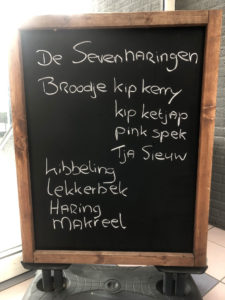 De Sevenharingen
Broodje kip kerry
kip ketjap
pink spek
Tja Sieuw
kibbeling
lekkerbek
Haring
makreel